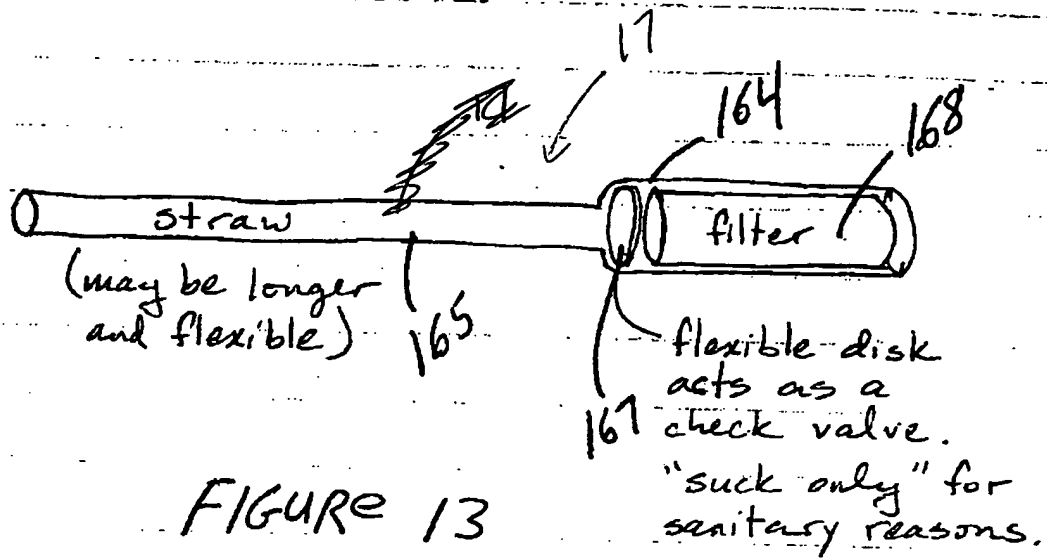 17
164
168
straw
filter
(may be longer
and flexible)
165
167
flexible disk
acts as a
check valve.
"suck only" for
sanitary reasons.
FIGURe 13